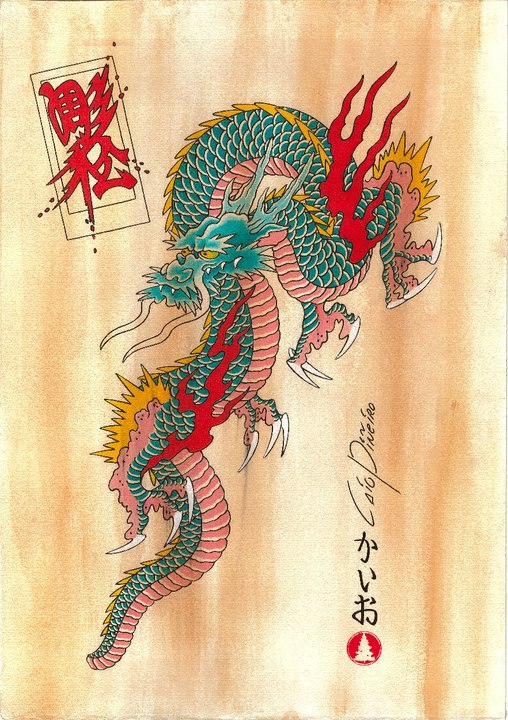 彫松
Caio Pineiro
かいお